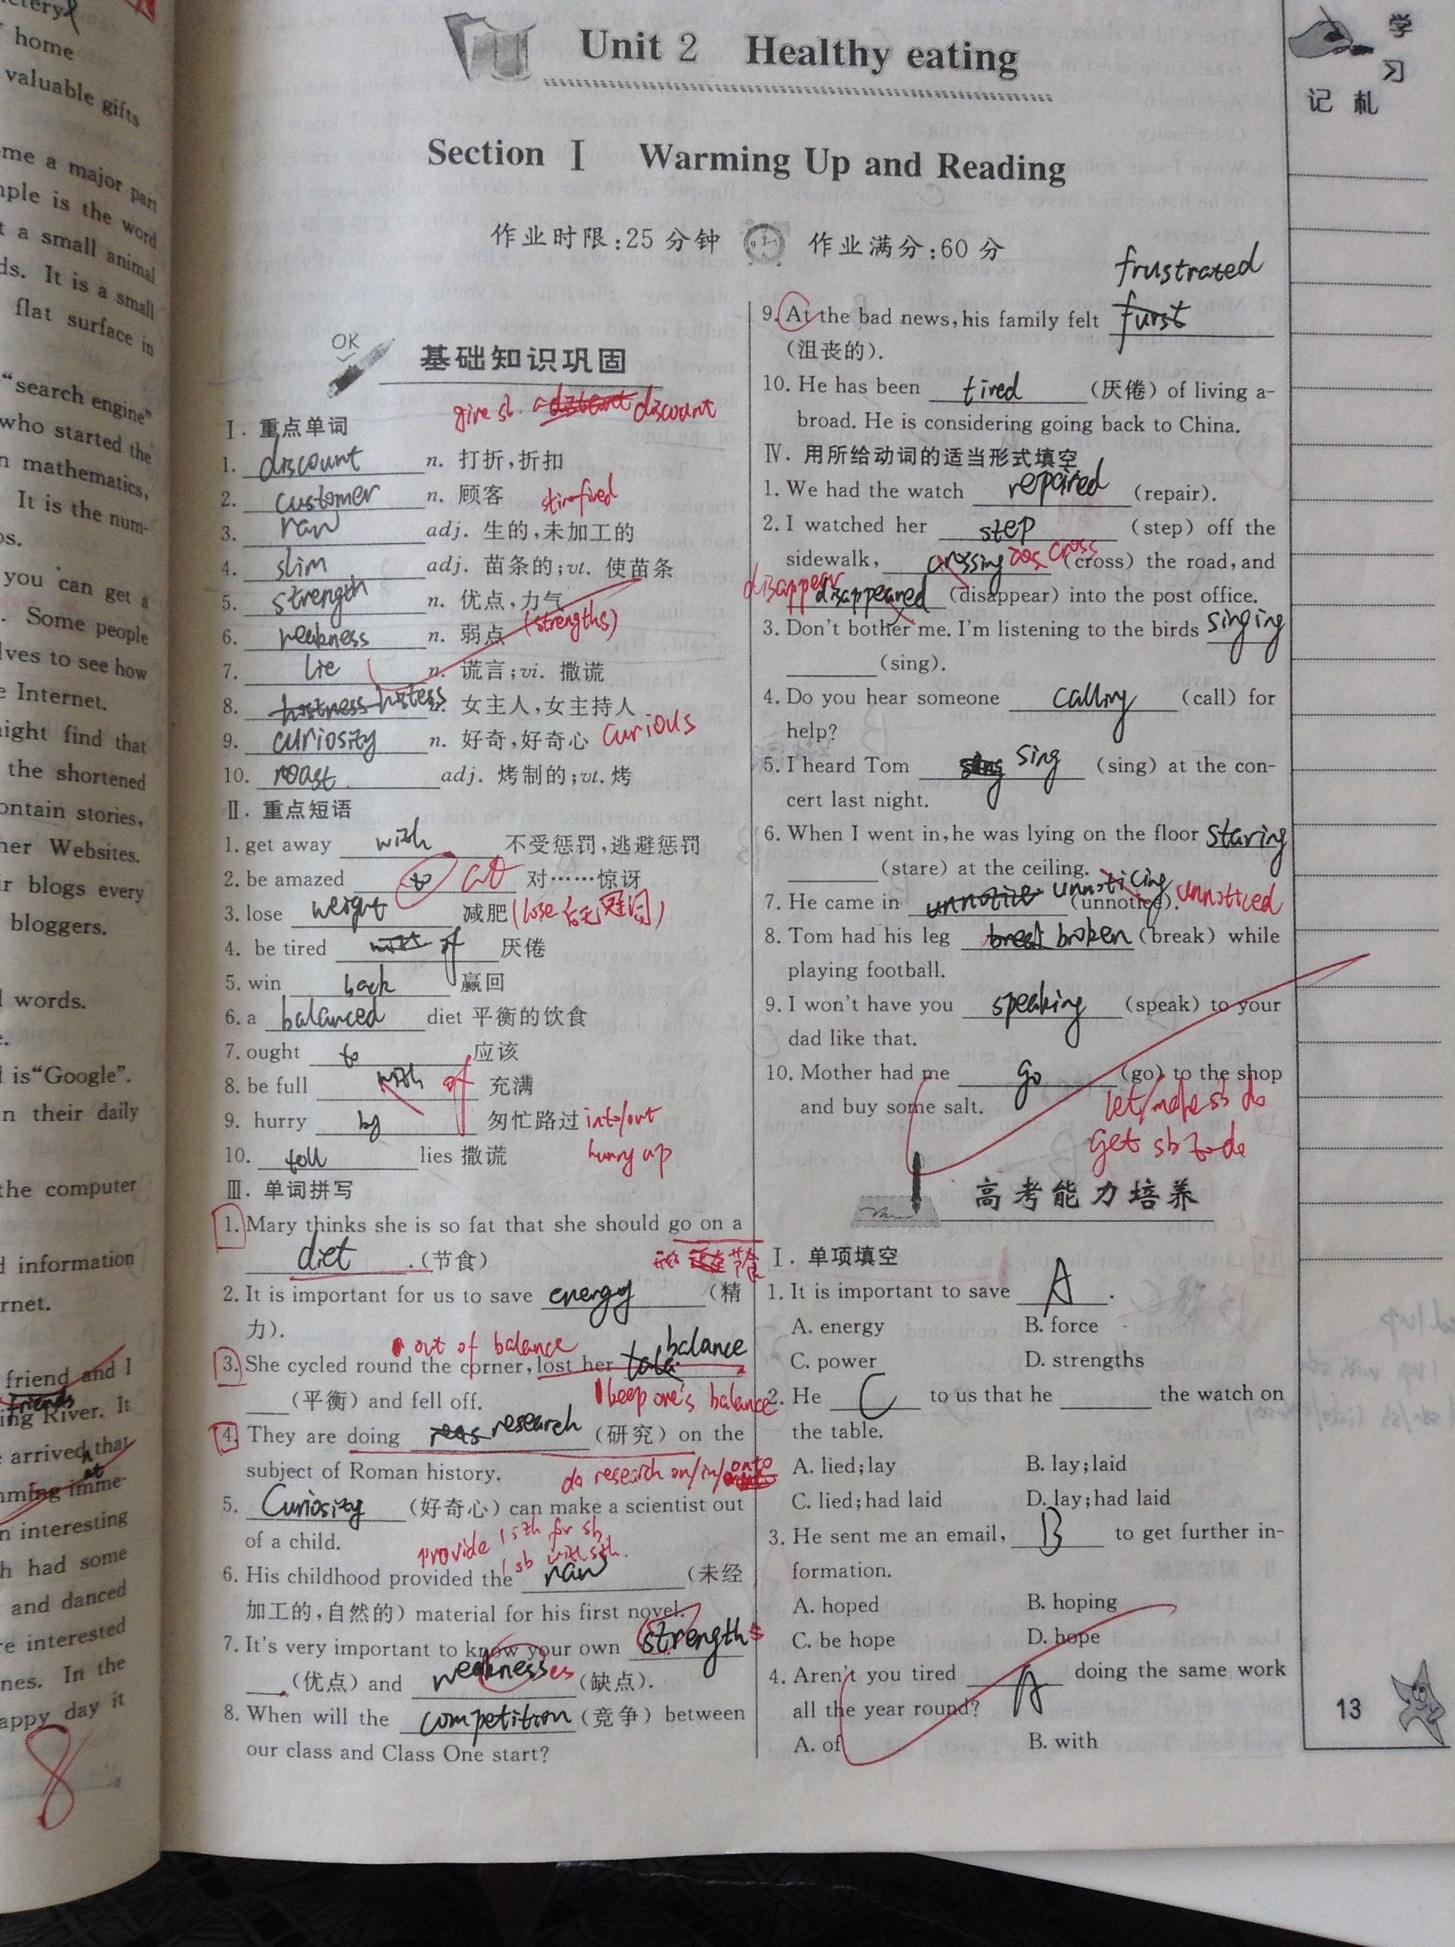 etery
home
valuable gifts
me a major part
mple is the word
t a small animal
ds. It is a small
flat surface in
"search engine"
who started the
n mathematics,
It is the num-
os.
you can get a
. Some people
lves to see how
e Internet.
ight find that
the shortened
ontain stories,
her Websites.
ir blogs every
bloggers.
l words.
e.
d is"Google".
n their daily
the computer
d information
rnet.
friend and I
friends
ing River. It
arrived that
at
mming imme-
n interesting
h had some
and danced
re interested
nes. In the
appy day it
8
Unit 2 Healthy eating
Section Ⅰ Warming Up and Reading
作业时限:25 分钟 作业满分:60 分
OK
基础知识巩固
give sb. a discount
Ⅰ. 重点单词
1. discount n. 打折,折扣
2. customer n. 顾客 stirfried
3. raw adj. 生的,未加工的
4. slim adj. 苗条的;vt. 使苗条
5. strength n. 优点,力气
6. weakness n. 弱点 (strengths)
7. lie n. 谎言;vi. 撒谎
8. hostness hostess n. 女主人,女主持人
9. curiosity n. 好奇,好奇心 curious
10. roast adj. 烤制的;vt. 烤
Ⅱ. 重点短语
1. get away with 不受惩罚,逃避惩罚
2. be amazed to at 对……惊讶
3. lose weight 减肥(lose 后无冠词)
4. be tired with of 厌倦
5. win back 赢回
6. a balanced diet 平衡的饮食
7. ought to 应该
8. be full with of 充满
9. hurry by 匆忙路过 into/out
10. tell lies 撒谎 hurry up
Ⅲ. 单词拼写
1. Mary thinks she is so fat that she should go on a
diet .(节食) 开始 节食
2. It is important for us to save energy (精
力).
out of balance
3. She cycled round the corner, lost her balance
(平衡) and fell off. keep one's balance
4. They are doing reas research (研究) on the
subject of Roman history. do research on/in/onto
5. Curiosity (好奇心) can make a scientist out
of a child.
provide sth for sb
sb with sth.
6. His childhood provided the raw (未经
加工的,自然的) material for his first novel.
7. It's very important to know your own strengths
(优点) and weaknesses (缺点).
8. When will the competition (竞争) between
our class and Class One start?
frustrated
9. At the bad news, his family felt furst
(沮丧的).
10. He has been tired (厌倦) of living a-
broad. He is considering going back to China.
Ⅳ. 用所给动词的适当形式填空
1. We had the watch repaired (repair).
2. I watched her step (step) off the
sidewalk, crossing cos cross (cross) the road, and
disappear disappeared (disappear) into the post office.
3. Don't bother me. I'm listening to the birds singing
(sing).
4. Do you hear someone calling (call) for
help?
5. I heard Tom sing (sing) at the con-
cert last night.
6. When I went in, he was lying on the floor staring
(stare) at the ceiling.
7. He came in unnotice unnoticing (unnotice). unnoticed
8. Tom had his leg broken (break) while
playing football.
9. I won't have you speaking (speak) to your
dad like that.
10. Mother had me go (go) to the shop
and buy some salt. let/make sb do
get sb to do
高考能力培养
Ⅰ. 单项填空
1. It is important to save A .
A. energy B. force
C. power D. strengths
2. He C to us that he the watch on
the table.
A. lied;lay B. lay;laid
C. lied;had laid D. lay;had laid
3. He sent me an email, B to get further in-
formation.
A. hoped B. hoping
C. be hope D. hope
4. Aren't you tired A doing the same work
all the year round?
A. of B. with
学
习
记 札
13